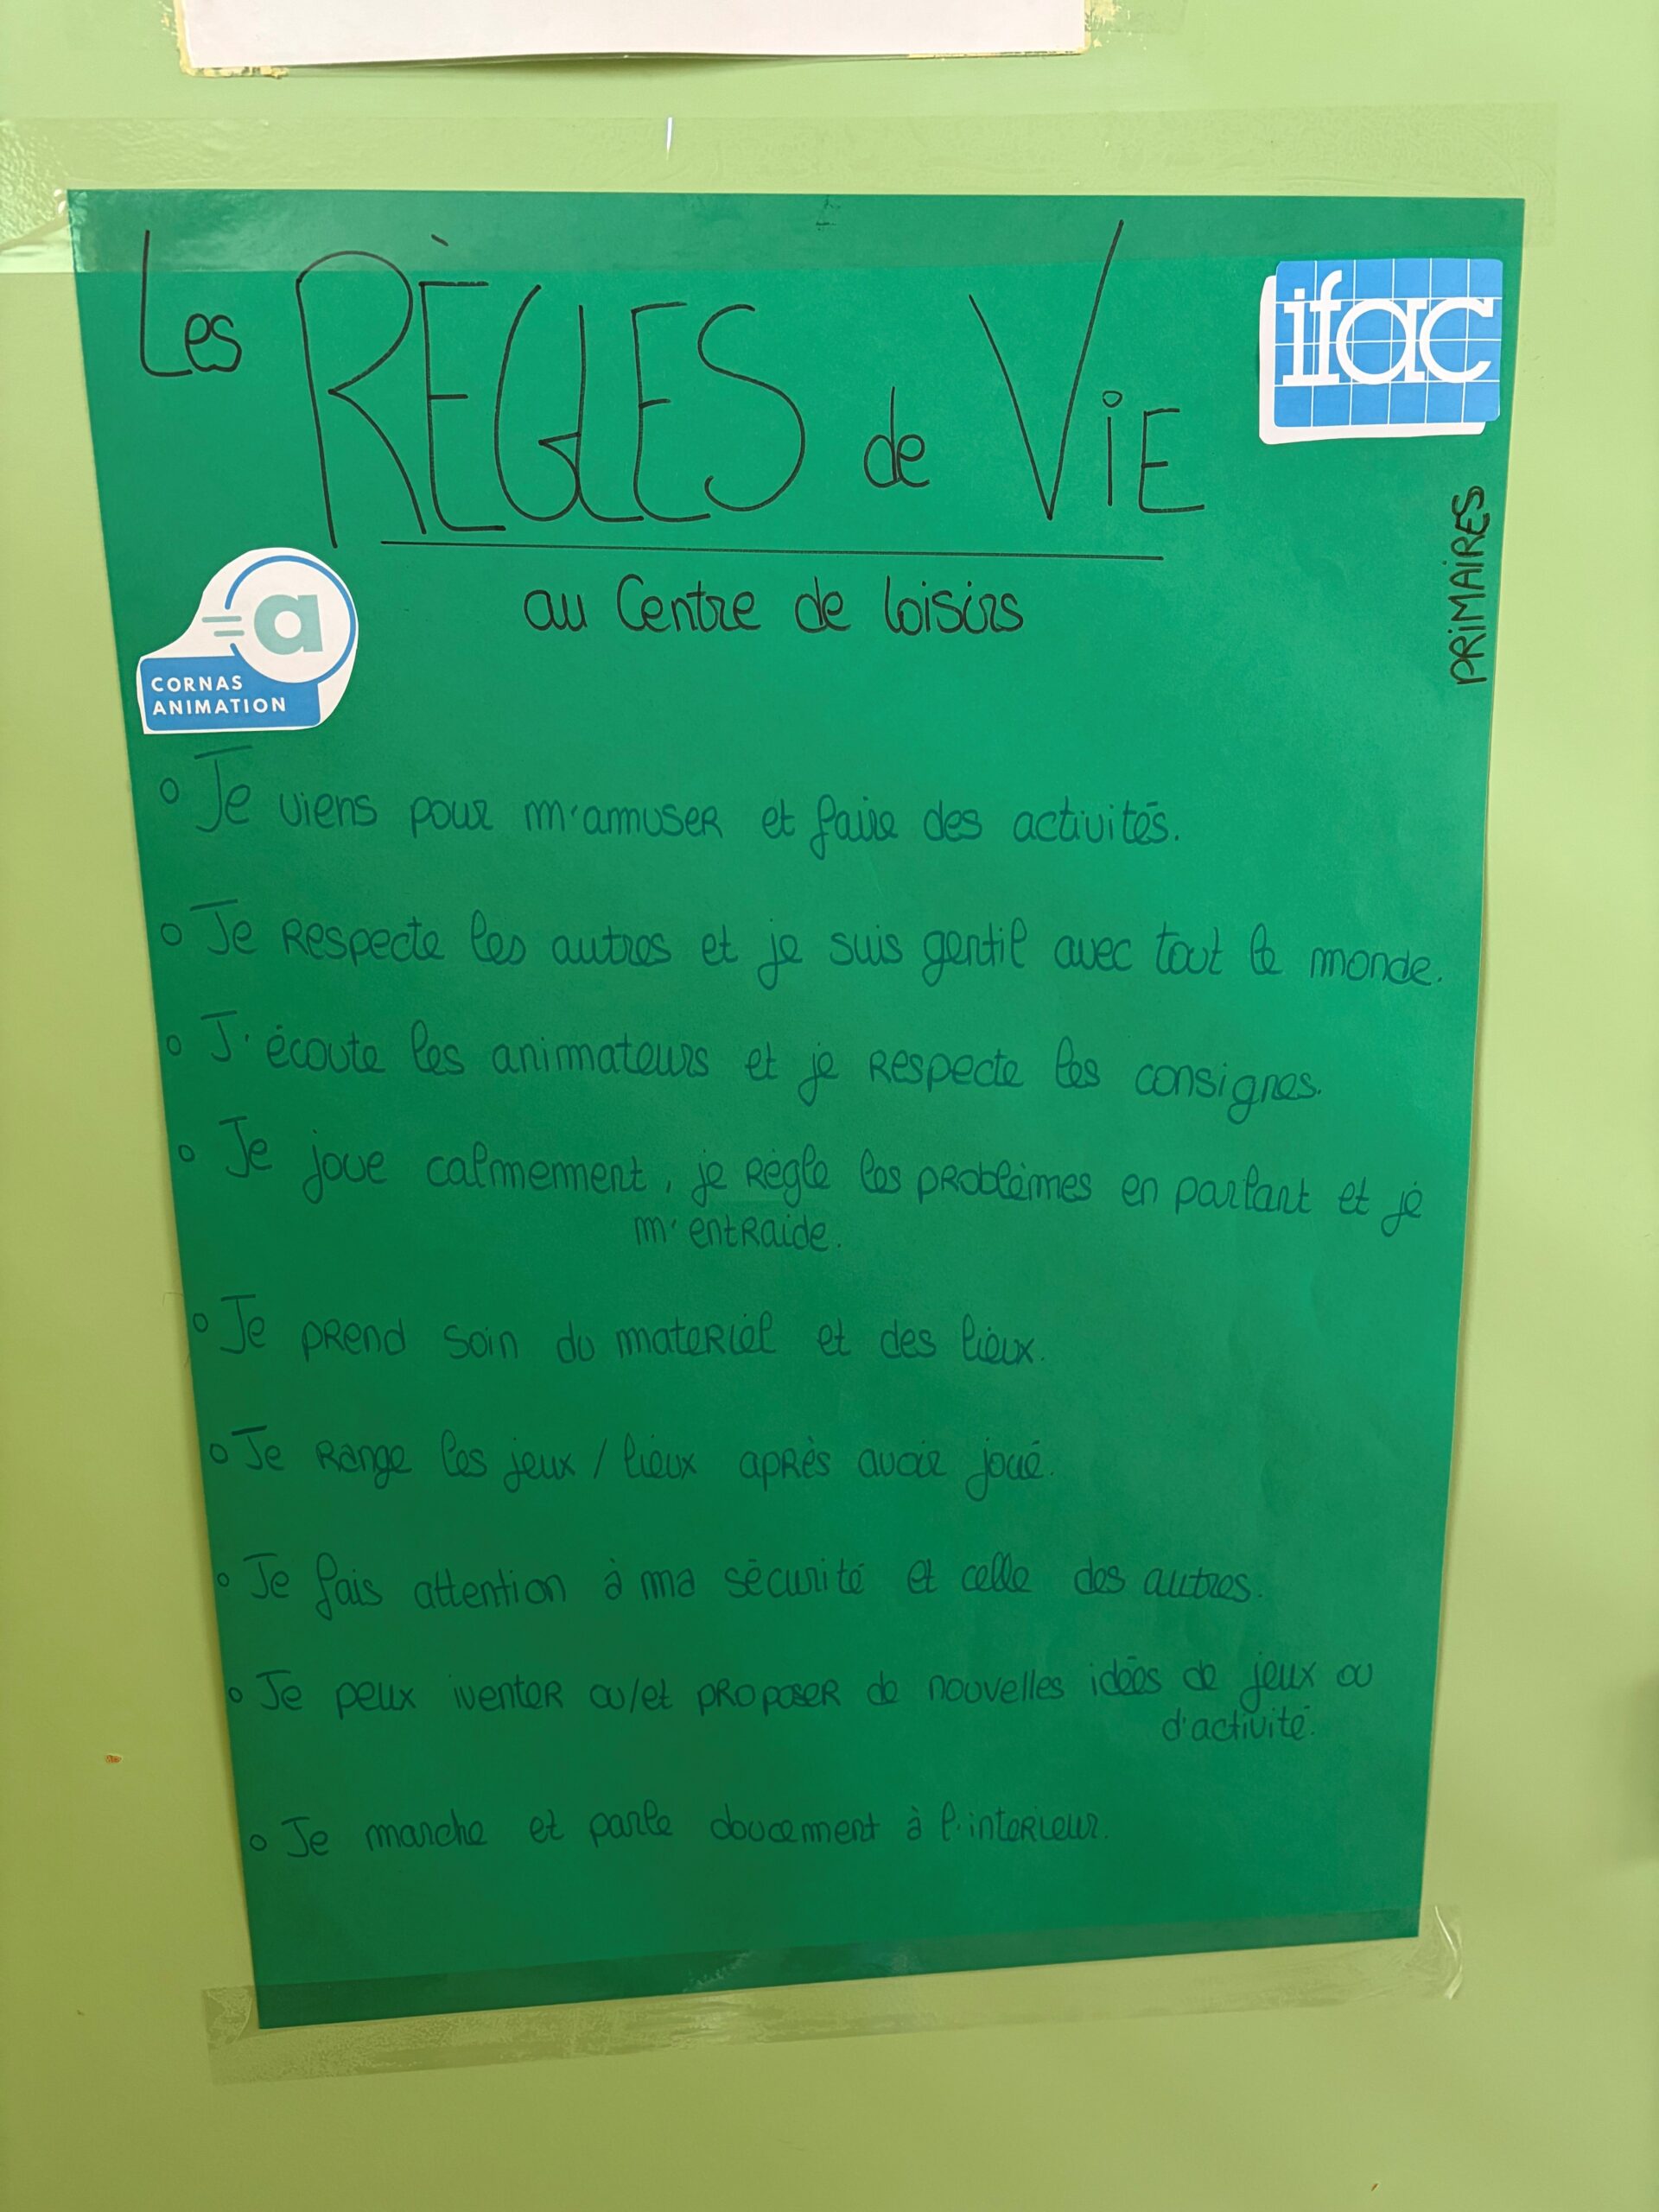 Les RÈGLES de ViE
ifac
PRiMAiRES
au Centre de loisirs
a
CORNAS
ANIMATION
o Je viens pour m'amuser et faire des activités.
o Je respecte les autres et je suis gentil avec tout le monde.
o J'écoute les animateurs et je respecte les consignes.
o Je joue calmement, je règle les problèmes en parlant et je
m'entraide.
o Je prend soin du materiel et des lieux.
o Je range les jeux / lieux après avoir joué.
o Je fais attention à ma sécurité et celle des autres.
o Je peux iventer ou/et proposer de nouvelles idées de jeux ou
d'activité.
o Je marche et parle doucement à l'interieur.